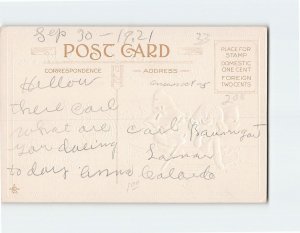 Sep 30 - 1921
POST CARD
CORRESPONDENCE
ADDRESS
PLACE FOR
STAMP
DOMESTIC
ONE CENT
FOREIGN
TWO CENTS
Hellow
there Carl
what are
you doeing
to day Anna
Carl
Lamar
Colorado